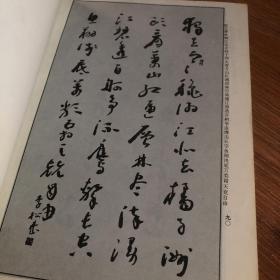 獨立寒秋湘江北去橘子洲
頭看萬山紅遍層林盡染漫
江碧透百舸争流鷹擊長空
魚翔淺底萬類霜天競自由
九〇